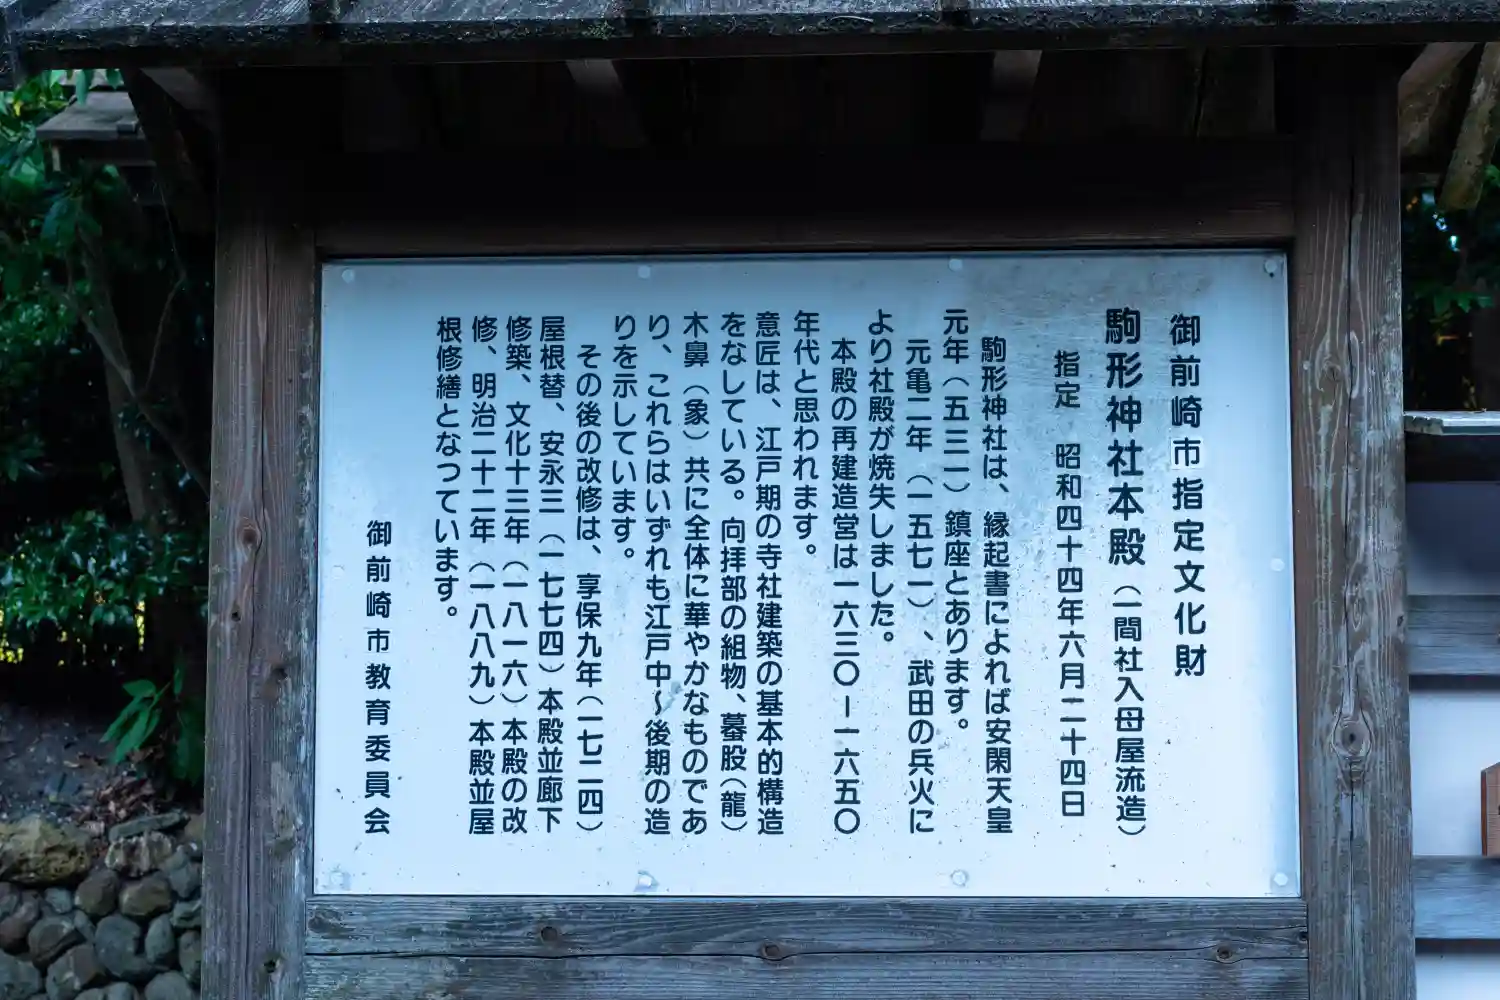 御前崎市指定文化財
駒形神社本殿（一間社入母屋流造）
指定　昭和四十四年六月二十四日
駒形神社は、縁起書によれば安閑天皇
元年（五三一）鎮座とあります。
元亀二年（一五七一）、武田の兵火に
より社殿が焼失しました。
本殿の再建造営は一六三〇－一六五〇
年代と思われます。
意匠は、江戸期の寺社建築の基本的構造
をなしている。向拝部の組物、蟇股（龍）
木鼻（象）共に全体に華やかなものであ
り、これらはいずれも江戸中～後期の造
りを示しています。
その後の改修は、享保九年（一七二四）
屋根替、安永三（一七七四）本殿並廊下
修築、文化十三年（一八一六）本殿の改
修、明治二十二年（一八八九）本殿並屋
根修繕となつています。
御前崎市教育委員会